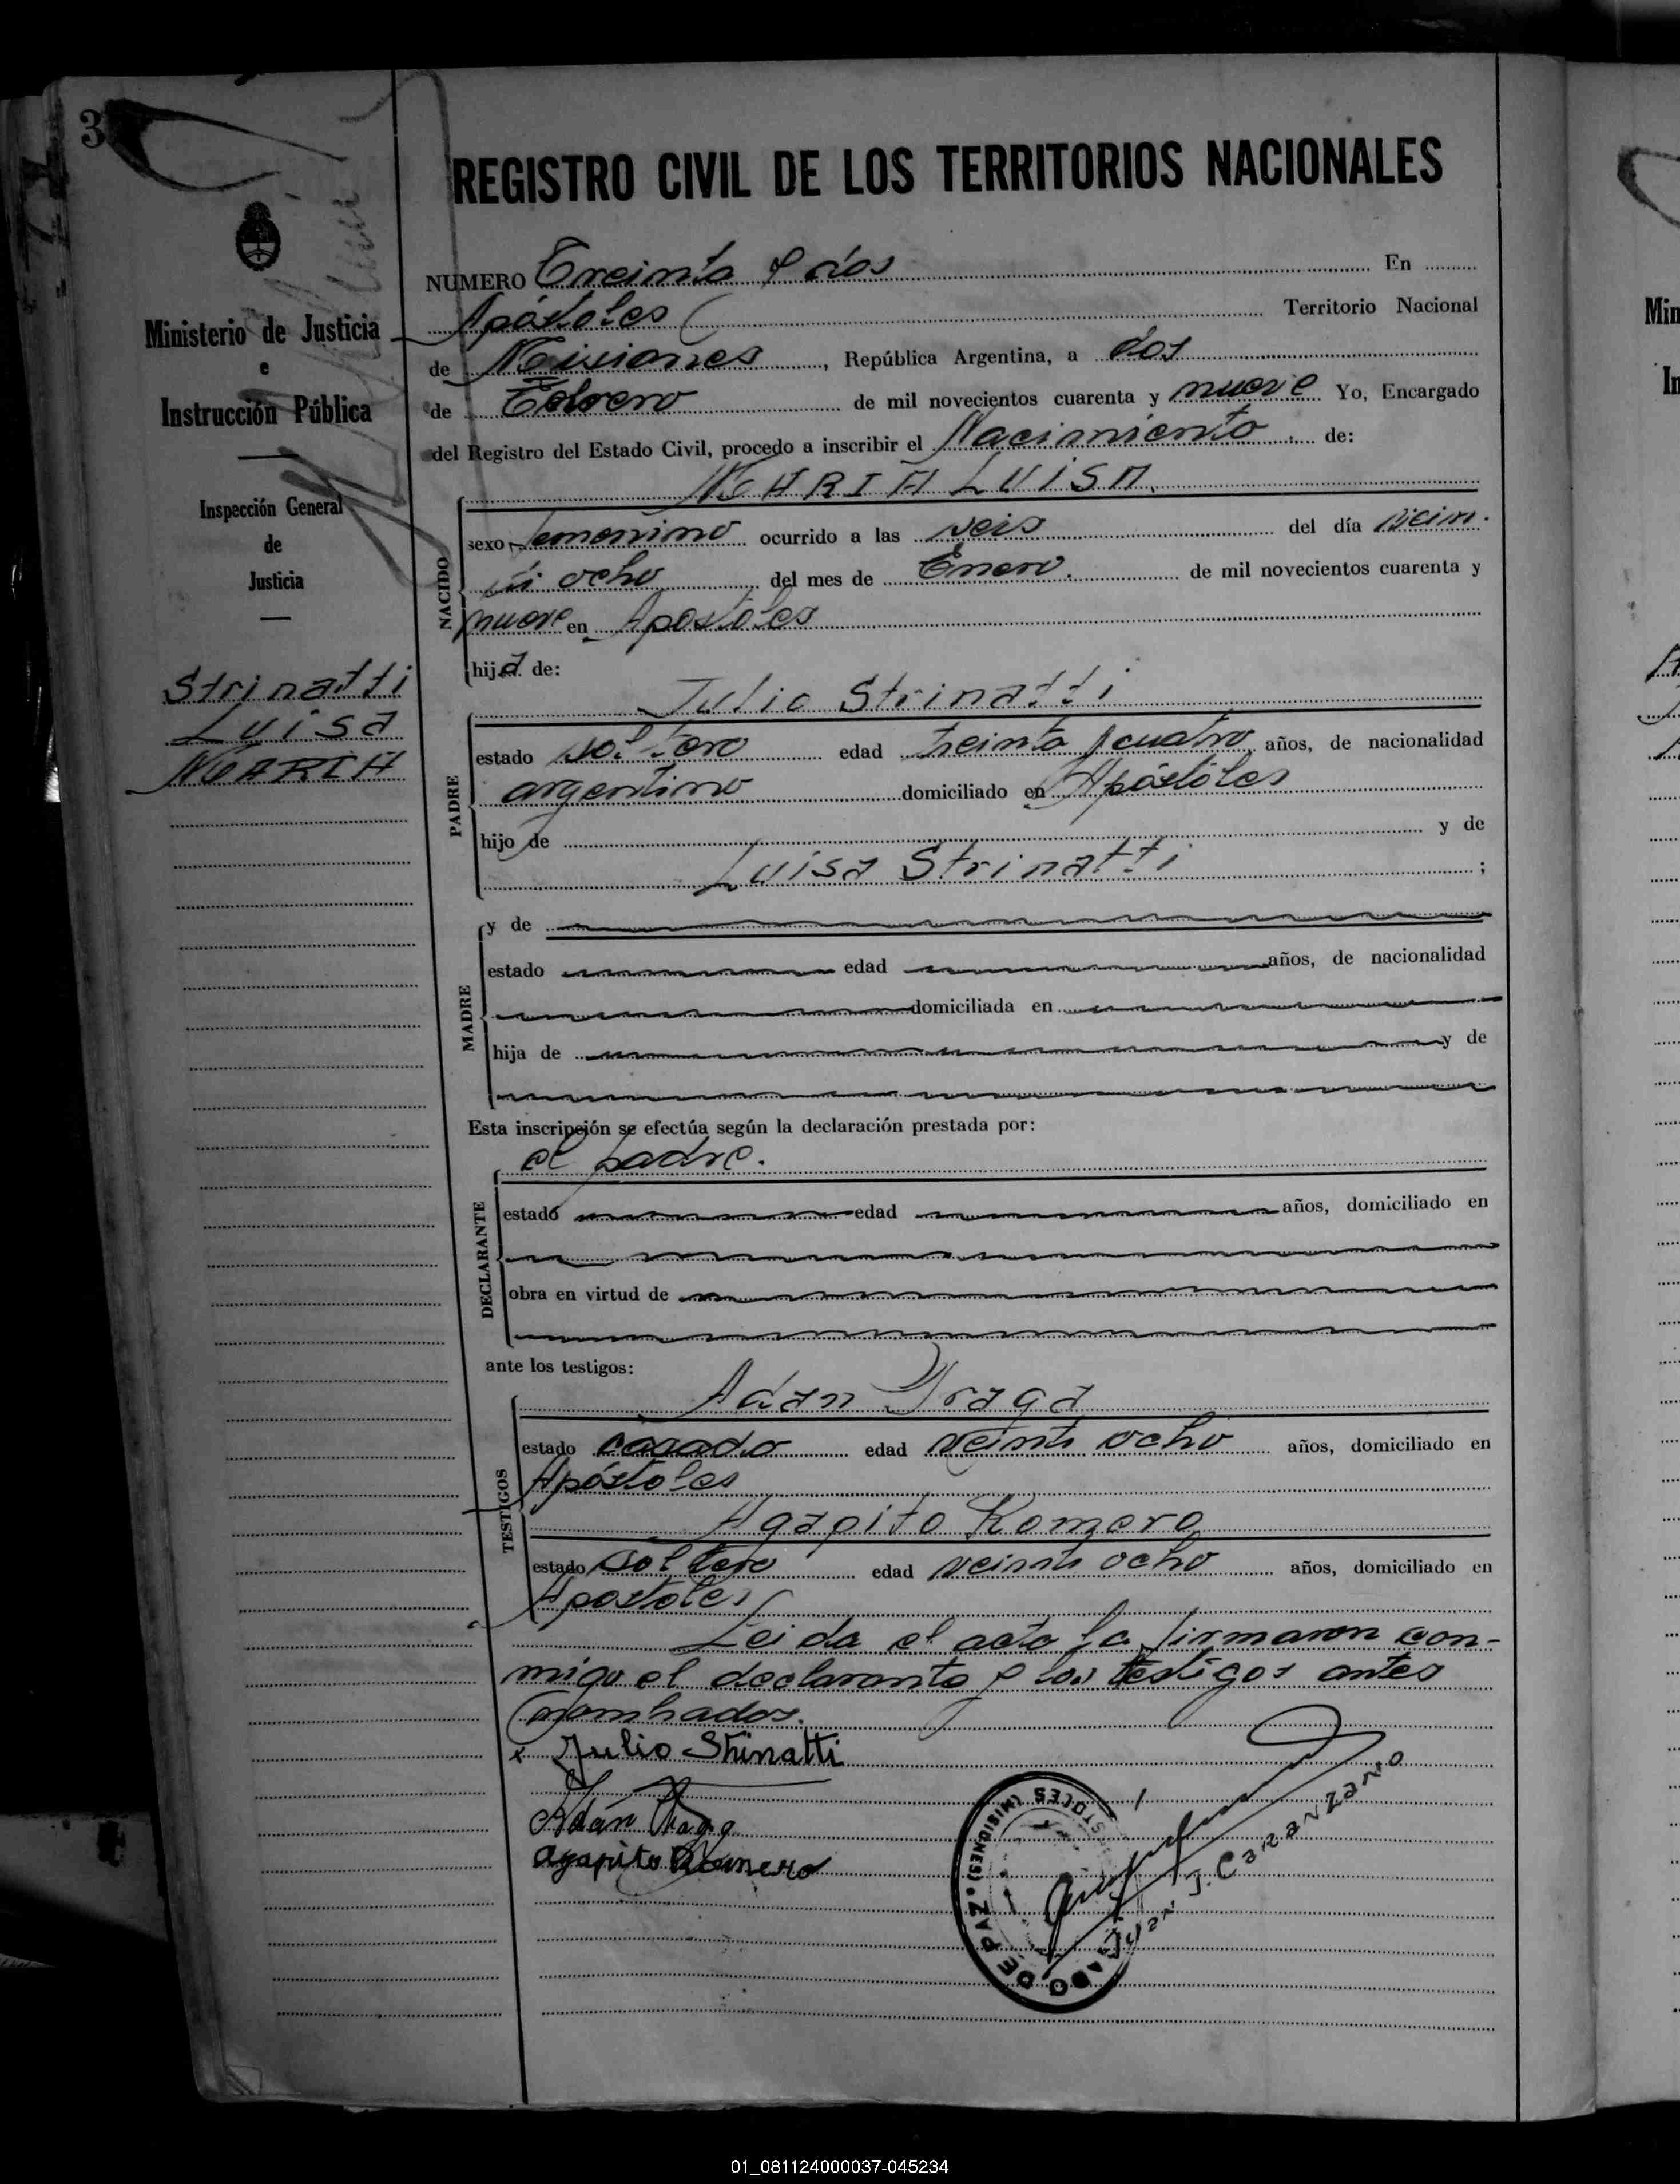 3
REGISTRO CIVIL DE LOS TERRITORIOS NACIONALES
Ministerio de Justicia
e
Instrucción Pública
Inspección General
de
Justicia
Strinatti
Luisa
MARIA
NUMERO Treinta y dos En
Apóstoles Territorio Nacional
de Misiones, República Argentina, a dos
de Febrero de mil novecientos cuarenta y nueve Yo, Encargado
del Registro del Estado Civil, procedo a inscribir el Nacimiento de:
MARIA LUISA.
NACIDO
sexo femenino ocurrido a las seis del día
ocho del mes de Enero. de mil novecientos cuarenta y
nueve en Apostoles
hija de:
Julio Strinatti
PADRE
estado soltero edad treinta y cuatro años, de nacionalidad
argentino domiciliado en Apóstoles
hijo de y de
Luisa Strinatti ;
MADRE
y de
estado edad años, de nacionalidad
domiciliada en
hija de y de
Esta inscripción se efectúa según la declaración prestada por:
el padre.
DECLARANTE
estado edad años, domiciliado en
obra en virtud de
ante los testigos:
Adán Draga
TESTIGOS
estado casado edad veinti ocho años, domiciliado en
Apóstoles
Agapito Romero
estado soltero edad veinti ocho años, domiciliado en
Apostoles
Leida el acta la firmaron con-
migo el declarante y los testigos antes
nombrados.
x Julio Strinatti
Adán Draga
Agapito Romero
DE PAZ. (MISIONES)
Juan J. Canzanzano
Min
In
01_081124000037-045234